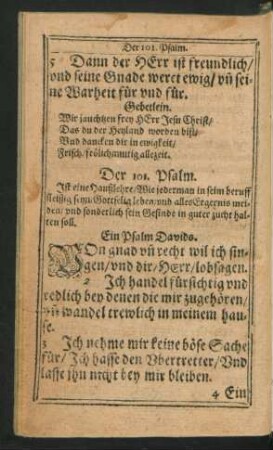 Der 101. Psalm.
5 Dann der HErr ist freundlich/
vnd seine Gnade weret ewig/ vñ sei-
ne Warheit für vnd für.
Gebetlein.
Wir jauchtzen frey HErr Jesu Christ/
Das du der Heyland worden bist/
Vnd dancken dir in ewigkeit/
Frisch/ frölichmutig allezeit.
Der 101. Psalm.
Ist eine Haußlehre/ Wie jederman in seim beruff
fleißig sein/ Gottselig leben/ vnd alles Ergernis mei-
den/ vnd sonderlich sein Gesinde in guter zucht hal-
ten soll.
Ein Psalm Davids.
VOn gnad vñ recht wil ich sin-
gen/ vnd dir/ HErr/ lobsagen.
2 Ich handel fürsichtig vnd
redlich bey denen die mir zugehören/
vñ wandel trewlich in meinem hau-
se.
3 Ich nehme mir keine böse Sache
für/ Ich hasse den Vbertretter/ Vnd
lasse ihn nicht bey mir bleiben.
4 Ein